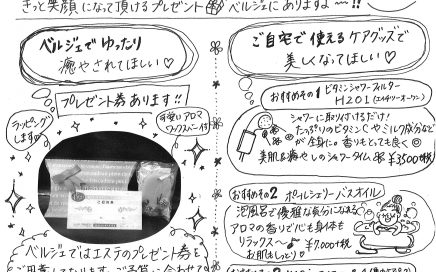 きっと笑顔になって頂けるプレゼント ベルジェにありますよ〜!!
ベルジェで ゆったり
癒やされてほしい♡
プレゼント券あります!!
ラッピング
します
可愛いアロマ
ワックスバー付
ベルジェではエステのプレゼント券を
ご用意しております。ご予算に合わせて
ご自宅で使えるケアグッズで
美しくなってほしい♡
おすすめその1 ビタミンシャワーフィルター
H201
シャワーに取り付けるだけ!
たっぷりのビタミンCやミルク成分などが
全身に。香りもとても良く
美肌&癒やしのシャワータイム ¥3500+税
おすすめその2 ボイルシェリーバスオイル
泡風呂で優雅な気分になれる
アロマの香りで心も身体も
リラックス〜♪
お肌もしっとり ¥7,000+税